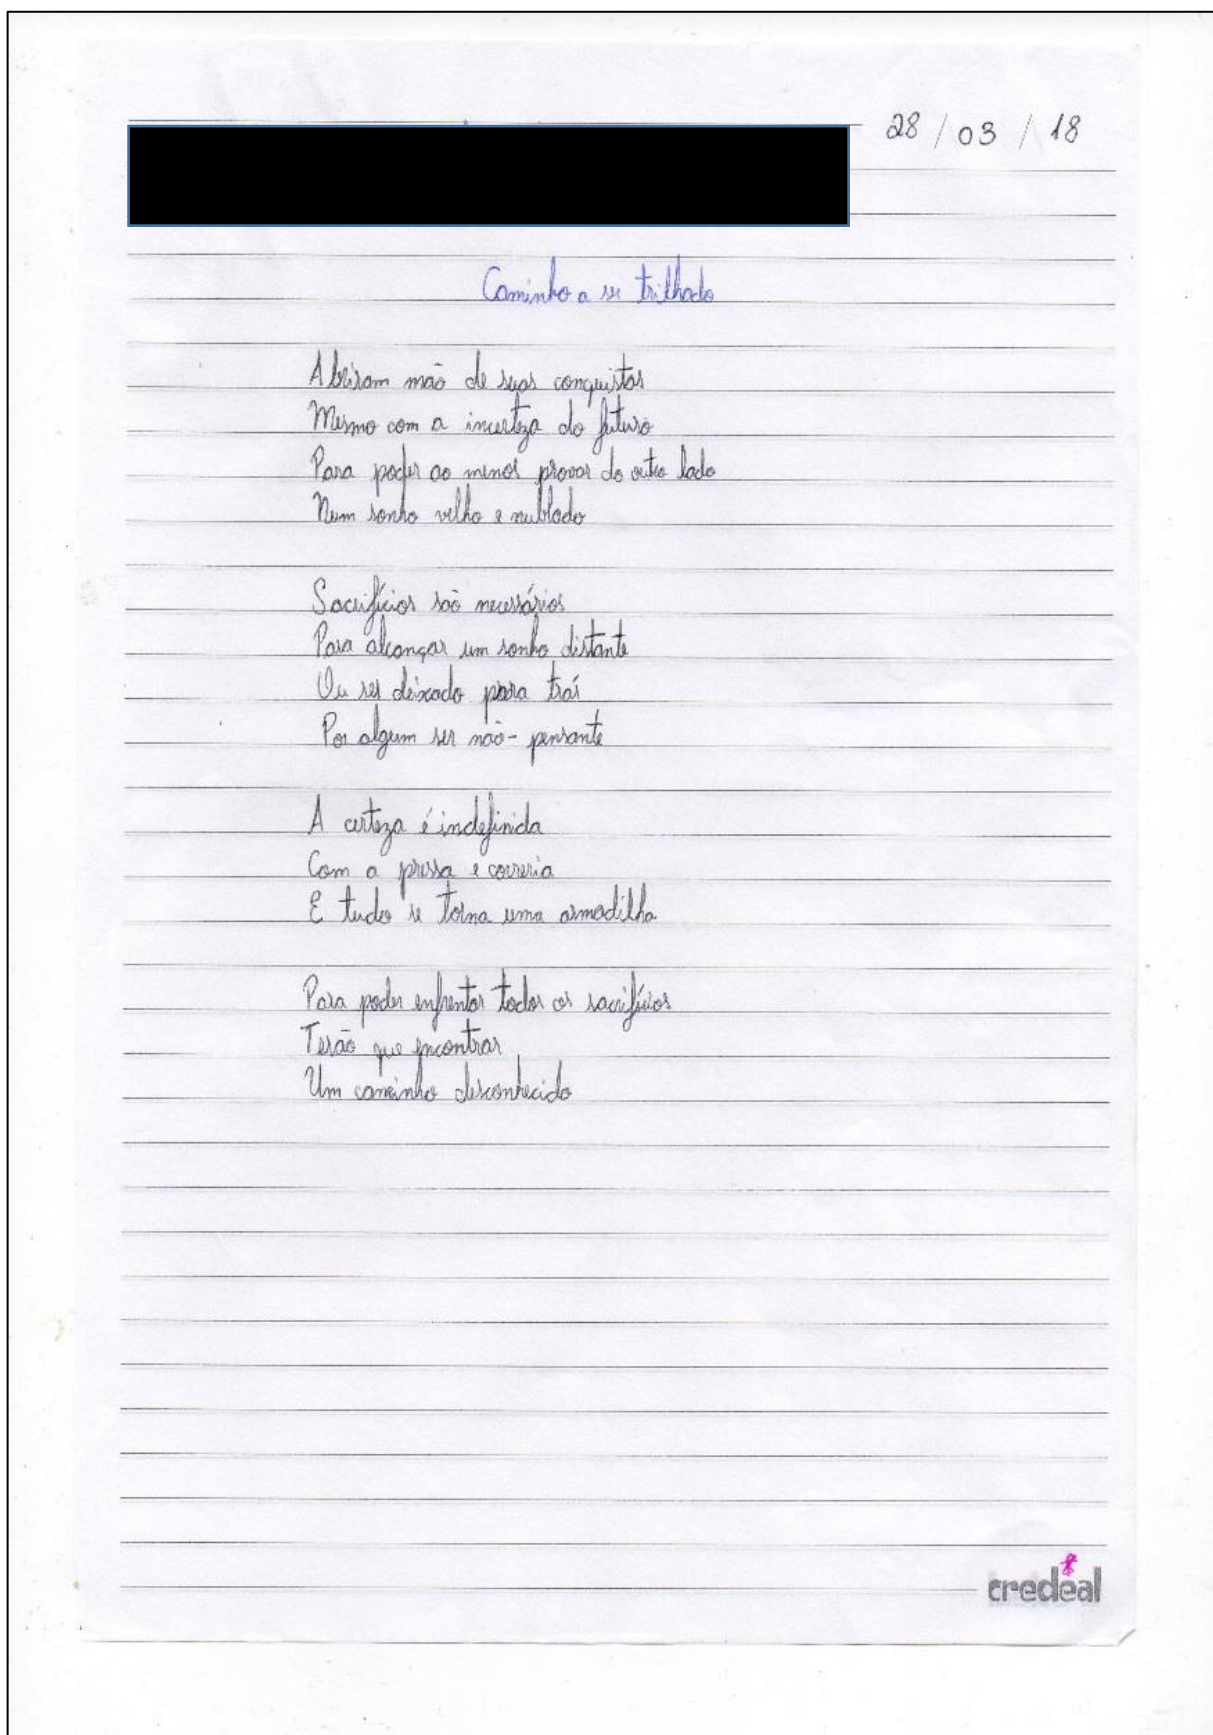 28 / 03 / 18
Caminho a ser trilhado
Abriram mão de suas conquistas
Mesmo com a incerteza do futuro
Para poder ao menos provar do outro lado
Num sonho velho e nublado
Sacrifícios são necessários
Para alcançar um sonho distante
Ou ser deixado para trás
Por algum ser não-pensante
A certeza é indefinida
Com a pressa e correria
E tudo se torna uma armadilha
Para poder enfrentar todos os sacrifícios
Terão que encontrar
Um caminho desconhecido
credeal